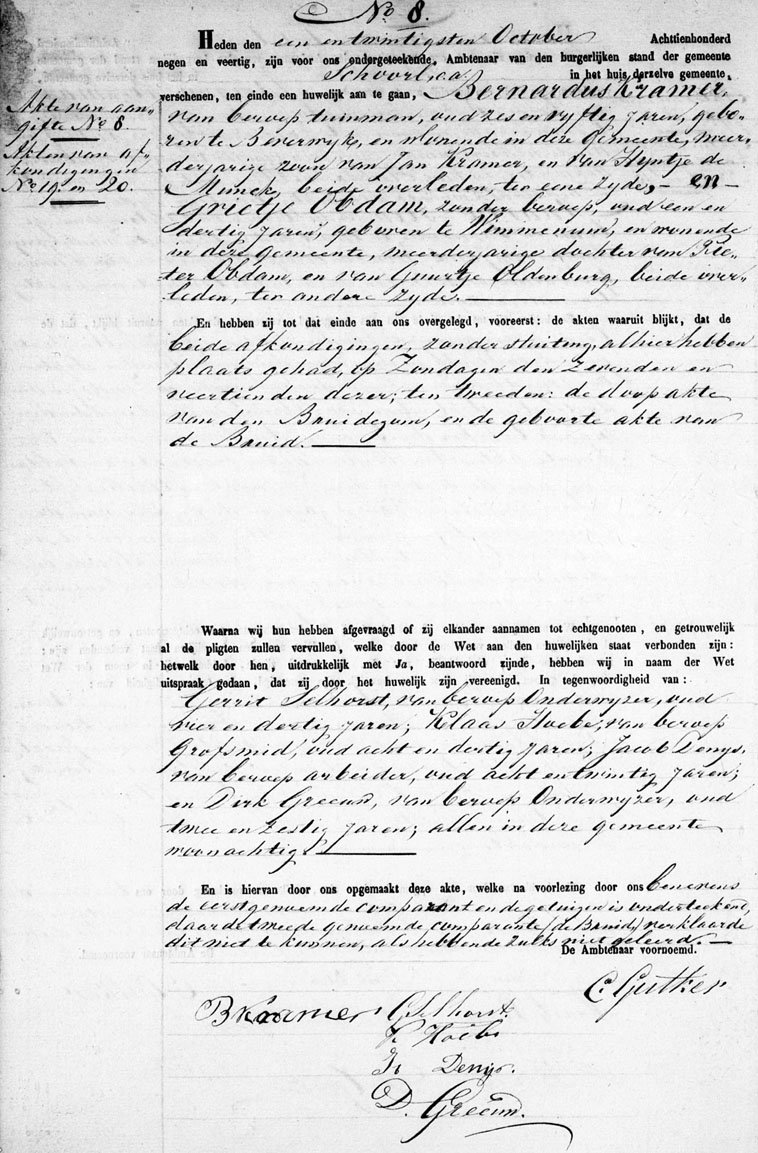 No 8.
Heden den een en twintigsten October Achttienhonderd
negen en veertig, zijn voor ons ondergeteekende, Ambtenaar van den burgerlijken stand der gemeente
Schoorl, ca. in het huis derzelve gemeente,
verschenen, ten einde een huwelijk aan te gaan, Bernardus Kramer,
van beroep tuinman, oud zes en vyftig jaren, gebo-
ren te Beverwyk, en wonende in deze gemeente, meer-
derjarige zoon van Jan Kramer, en van Antje de
Munck, beide overleden, ter eene zyde, – en –
Grietje Obdam, zonder beroep, oud een en
dertig jaren, geboren te Wimmenum, en wonende
in deze gemeente, meerderjarige dochter van Pie-
ter Obdam, en van Guurtje Oldenburg, beide over-
leden, ter andere zyde.
Akte van aan-
gifte No 8.
Akten van af-
kondigingen
No 19. en 20.
En hebben zij tot dat einde aan ons overgelegd, vooreerst: de akten waaruit blijkt, dat de
beide afkondigingen, zonder stuiting, alhier hebben
plaats gehad, op Zondagen den zevenden en
veertienden dezer; ten tweeden: de doop akte
van den Bruidegom, en de geboorte akte van
de Bruid.
Waarna wij hun hebben afgevraagd of zij elkander aannamen tot echtgenooten, en getrouwelijk
al de pligten zullen vervullen, welke door de Wet aan den huwelijken staat verbonden zijn:
hetwelk door hen, uitdrukkelijk met Ja, beantwoord zijnde, hebben wij in naam der Wet
uitspraak gedaan, dat zij door het huwelijk zijn vereenigd. In tegenwoordigheid van:
Gerrit Selhorst, van beroep Onderwyzer, oud
vier en dertig jaren; Klaas Hoebe, van beroep
Grofsmid, oud acht en dertig jaren; Jacob Denys,
van beroep arbeider, oud acht en twintig jaren;
en Dirk Greeuw, van beroep Onderwyzer, oud
twee en zestig jaren; allen in deze gemeente
woonachtig.
En is hiervan door ons opgemaakt deze akte, welke na voorlezing door ons benevens
de eerstgenoemde comparant en de getuigen is onderteekend,
daar de tweede genoemde comparante (de Bruid) verklaarde
dit niet te kunnen, als hebbende zulks niet geleerd. –
De Ambtenaar voornoemd.
C. Gutker
BKramer GSelhorst.
K Hoebe
Denys.
D. Greeuw.